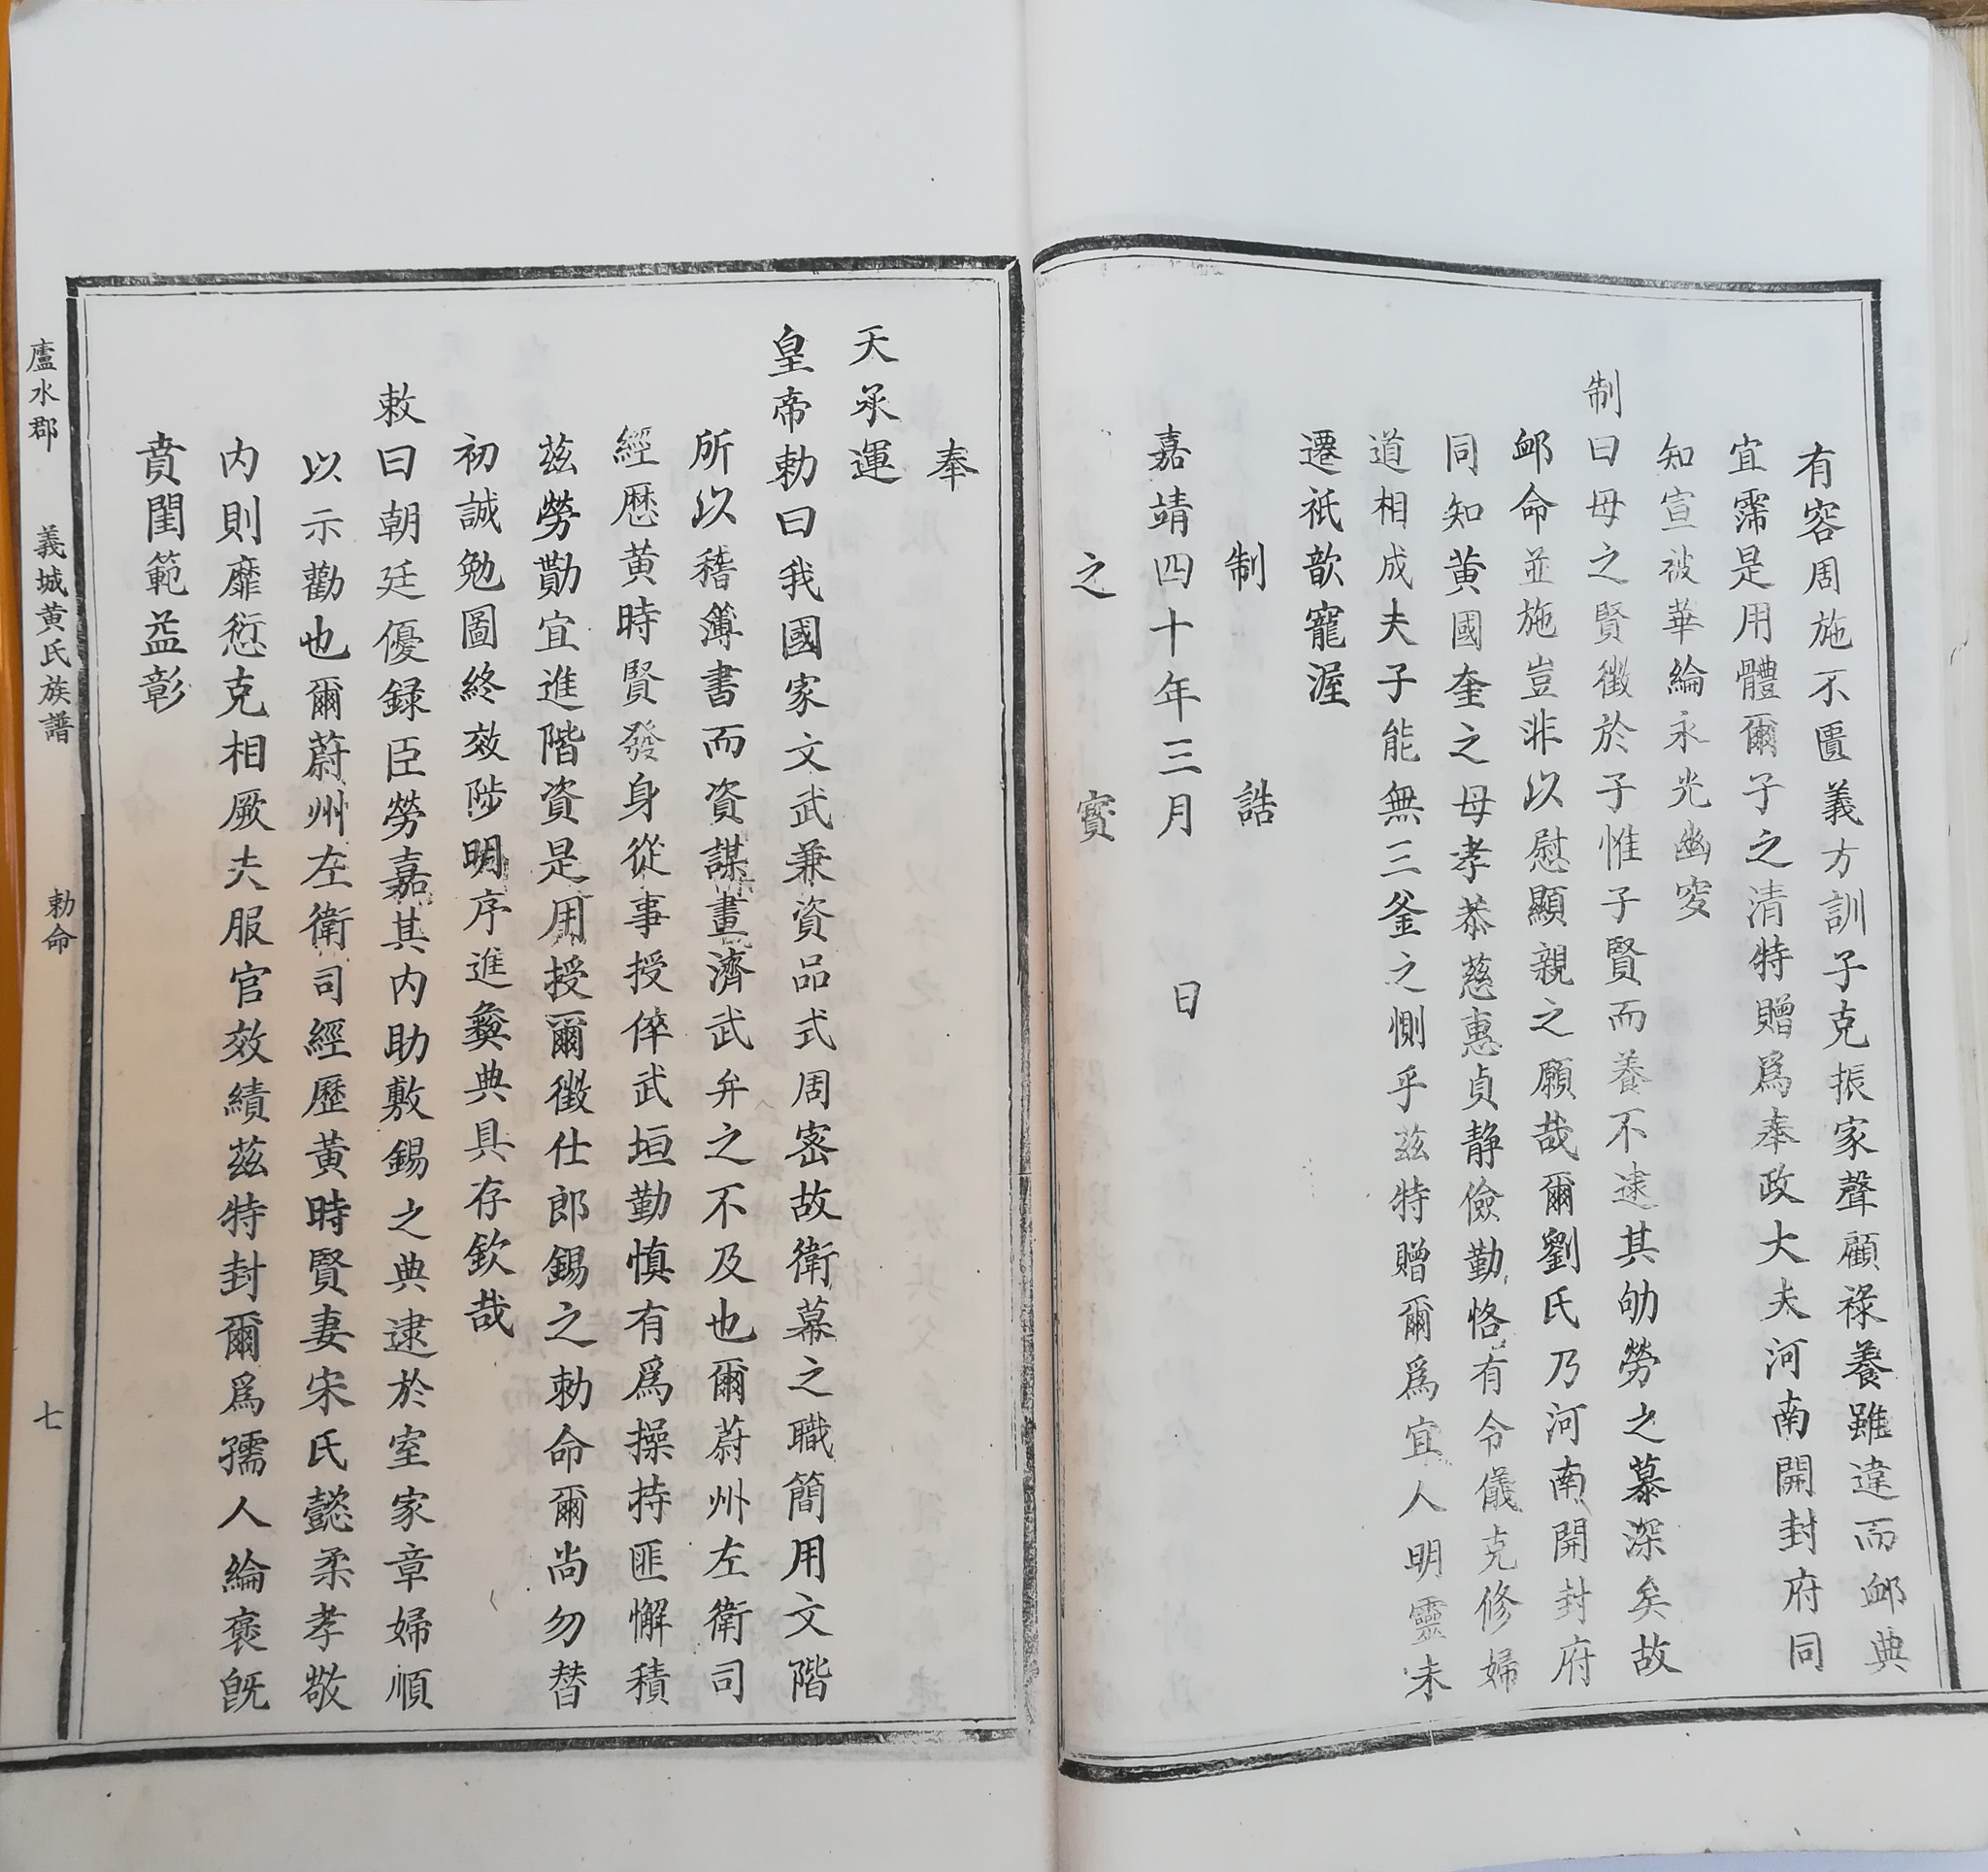 有容周施不匱義方訓子克振家聲顧祿養雖違而䘏典
宜霈是用體爾子之清特贈爲奉政大夫河南開封府同
知宣被華綸永光幽穸
制曰母之賢徵於子惟子賢而養不逮其劬勞之慕深矣故
䘏命並施豈非以慰顯親之願哉爾劉氏乃河南開封府
同知黄國奎之母孝恭慈惠貞静儉勤恪有令儀克修婦
道相成夫子能無三釜之惻乎兹特贈爾爲宜人明靈未
遷祇歆寵渥
制誥
嘉靖四十年三月 日
之寳
奉
天承運
皇帝勅曰我國家文武兼資品式周宻故衛幕之職簡用文階
所以稽簿書而資謀畫濟武弁之不及也爾蔚州左衛司
經歷黄時賢發身從事授倅武垣勤慎有爲操持匪懈積
兹勞勩宜進階資是用授爾徵仕郎錫之勅命爾尚勿替
初誠勉圖終效陟明序進彜典具存欽哉
敕曰朝廷優録臣勞嘉其内助敷錫之典逮於室家章婦順
以示勸也爾蔚州左衛司經歷黄時賢妻宋氏懿柔孝敬
内則靡愆克相厥夫服官效績兹特封爾爲孺人綸褒旣
賁閨範益彰
廬水郡 義城黄氏族譜 勅命 七